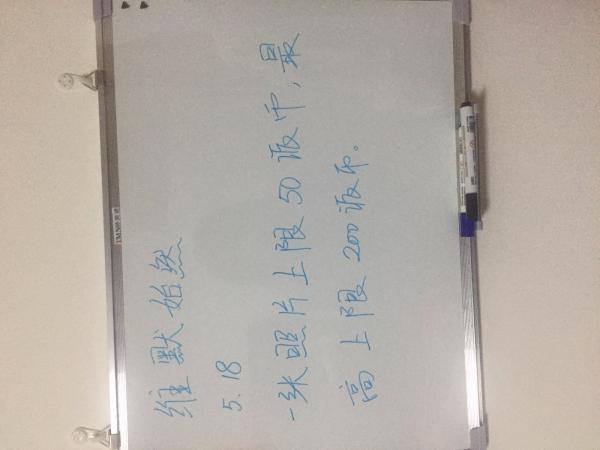 维默始终
5.18
一张照片上限50派币,最
高上限200派币。